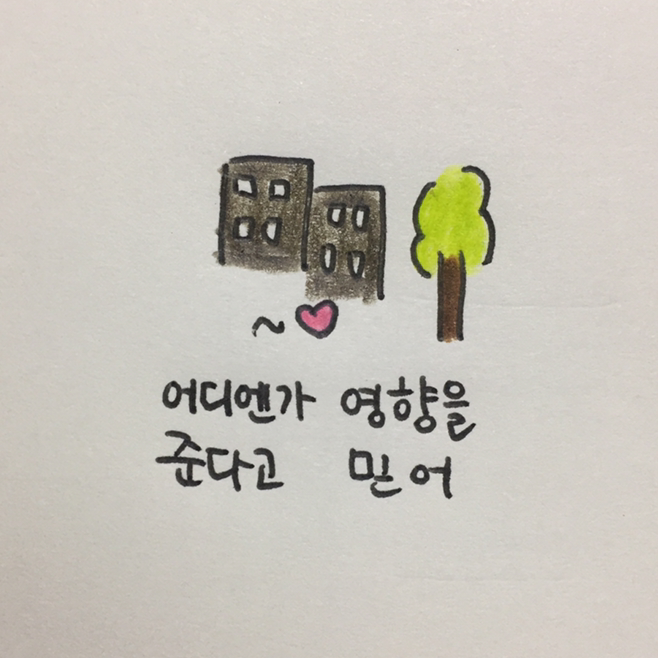 어디엔가 영향을
준다고 믿어